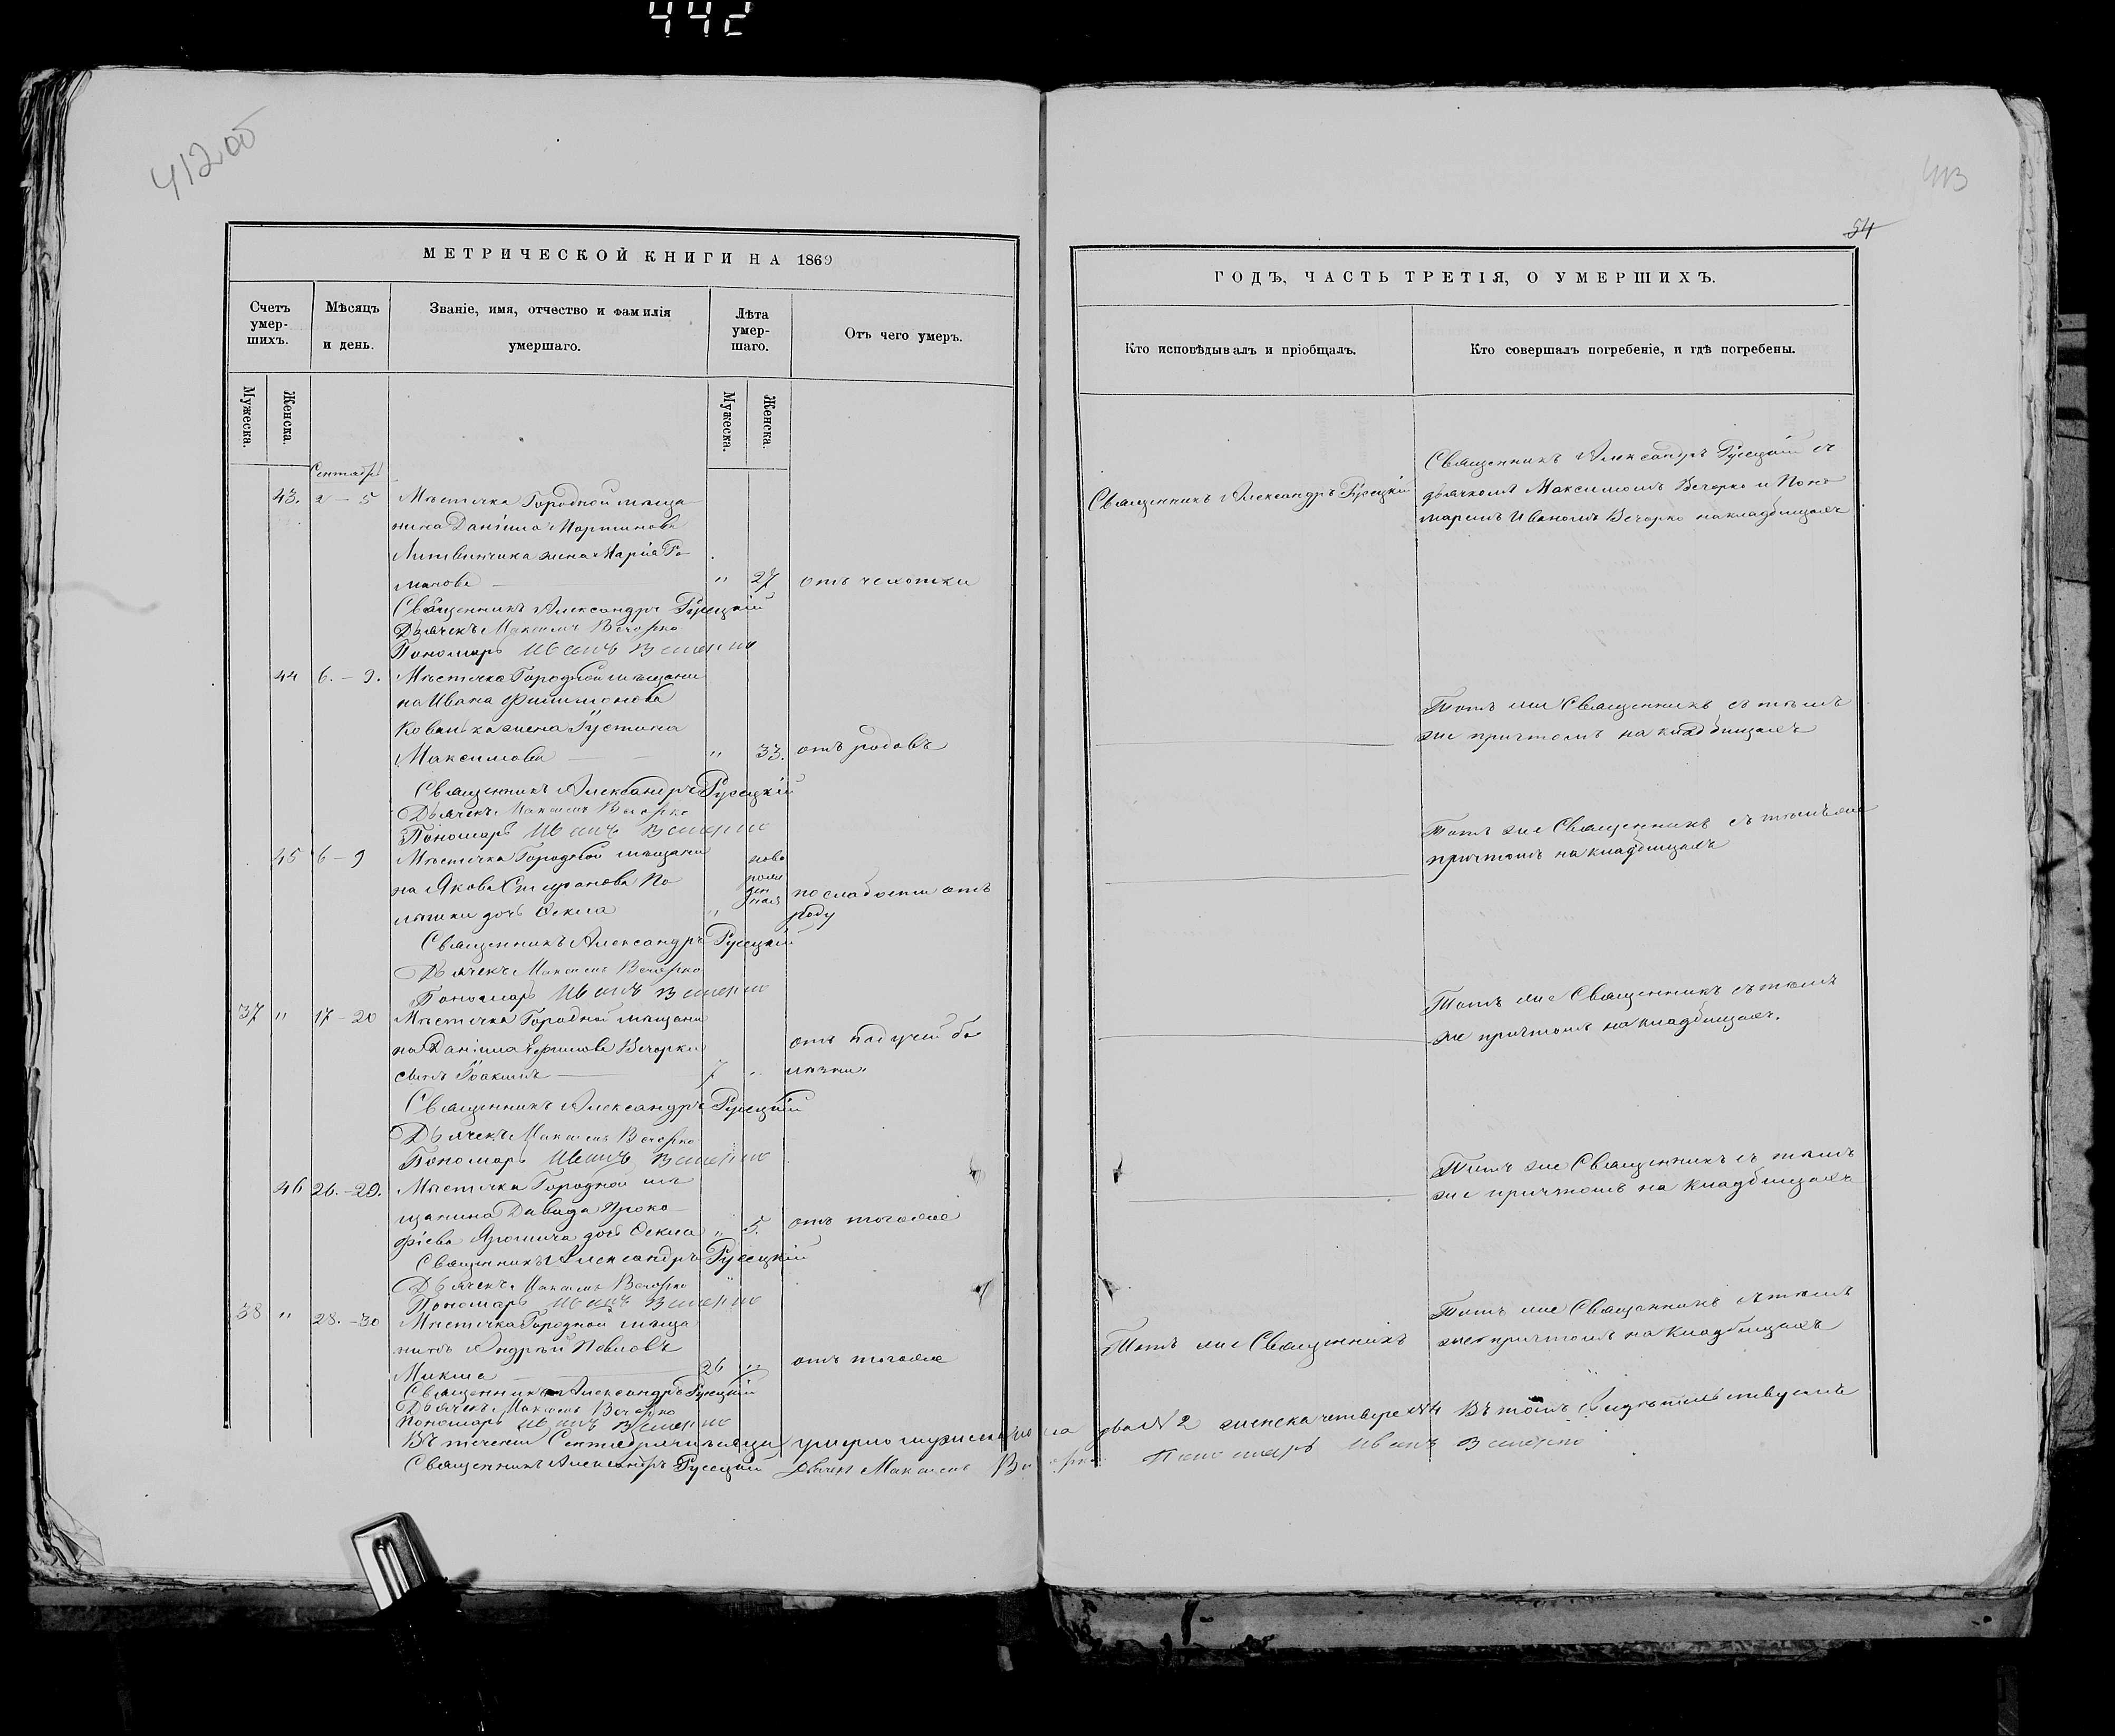 442
412об
413
54
МЕТРИЧЕСКОЙ КНИГИ НА 1869
Счетъ умер-шихъ.
Мѣсяцъ и день.
Званіе, имя, отчество и фамилія умершаго.
Лѣта умер-шаго.
Отъ чего умеръ.
Мужеска.
Женска.
Мужеска.
Женска.
Сентябрь
43. 2 – 5 Мѣстечка Городной мѣща
нина Даніила Мартинова
Литвинчика жена Марія Ро
манова " 27 отъ чехотки
Священникъ Александръ Русецкій
Дьячекъ Максимъ Вечорко
Пономарь Иванъ Вечорко
44 6. – 9. Мѣстечка Городной мѣщани
на Ивана Филимонова
жена Іустина
Максимова " 33. отъ родовъ
Священникъ Александръ Русецкій
Дьячекъ Максимъ Вечорко
Пономарь Иванъ Вечорко
45 6 – 9 Мѣстечка Городной мѣщани ново
на Якова По рож
ден
ная по слабости отъ
дочь Фекла " роду
Священникъ Александръ Русецкій
Дьячекъ Максимъ Вечорко
Пономарь Иванъ Вечорко
37 " 17 – 20 Мѣстечка Городной мѣщани
на Даніила Вечорки отъ падучей бо
сынъ Іоакимъ 7 " лѣзни.
Священникъ Александръ Русецкій
Дьячекъ Максимъ Вечорко
Пономарь Иванъ Вечорко
46 26. – 29. Мѣстечка Городной мѣ
щанина Давида Проко
фіева дочь Фекла " 5. отъ тогоже
Священникъ Александръ Русецкій
Дьячекъ Максимъ Вечорко
Пономарь Иванъ Вечорко
38 " 28. – 30 Мѣстечка Городной мѣща
нинъ Андрей Павловъ
Микша 26 " отъ тогоже
Священникъ Александръ Русецкій
Дьячекъ Максимъ Вечорко
Пономарь Иванъ Вечорко
Въ теченіи Сентября мѣсяца умерло мужеска пола два № 2 женска четверо № 4 Въ томъ свидѣтельствуемъ
Священникъ Александръ Русецкій Дьячекъ Максимъ Вечорко Пономарь Иванъ Вечорко
ГОДЪ, ЧАСТЬ ТРЕТІЯ, О УМЕРШИХЪ.
Кто исповѣдывалъ и пріобщалъ.
Кто совершалъ погребеніе, и гдѣ погребены.
Священникъ Александръ Русецкій
Священникъ Александръ Русецкій съ
дьячкомъ Максимомъ Вечорко и Поно
маремъ Иваномъ Вечорко на кладбищахъ
Тотъ же Священникъ съ тѣмъ
же причтомъ на кладбищахъ
Тотъ же Священникъ съ тѣмъ же
причтомъ на кладбищахъ
Тотъ же Священникъ съ тѣмъ
же причтомъ на кладбищахъ.
Тотъ же Священникъ съ тѣмъ
же причтомъ на кладбищахъ
Тотъ же Священникъ
Тотъ же Священникъ съ тѣмъ
же причтомъ на кладбищахъ